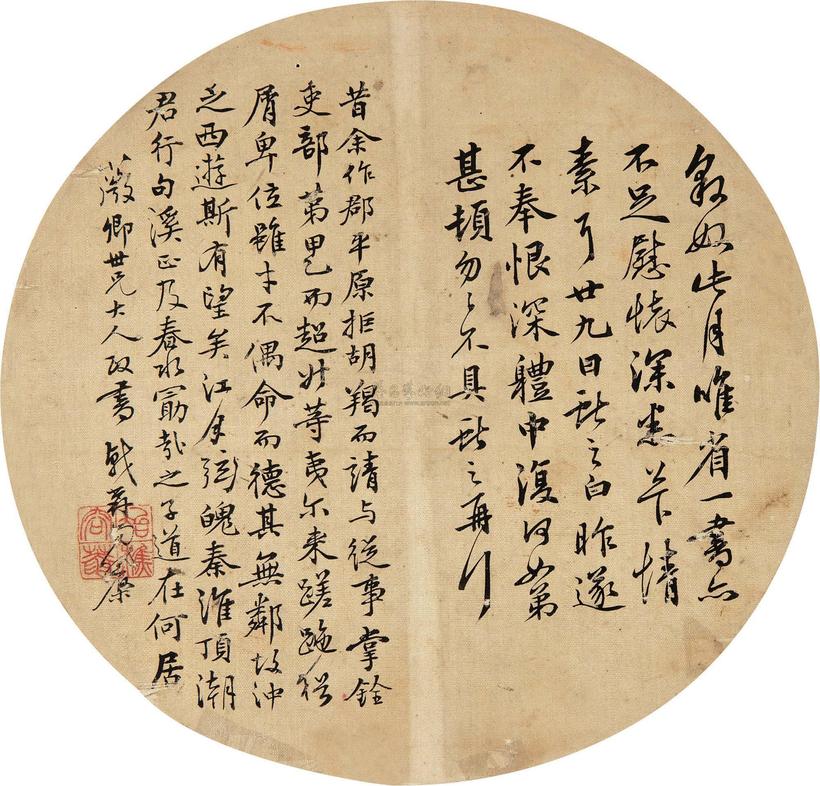 如此月唯省一書亦
不足慰懷深情
素了廿九日獻之白昨遂
不奉恨深體中復何如弟
甚頓勿々不具獻之再行
昔余作郡平原拒胡羯而請与從事掌銓
吏部第甲乙而超升等夷尔來蹉跎猶
屑卑位雖才不偶命而德其無鄰故沖
之西遊斯有望矣江月弦魄秦淮頂潮
君行句溪正及春水勗哉之子道在何居
薇卿世兄大人政書